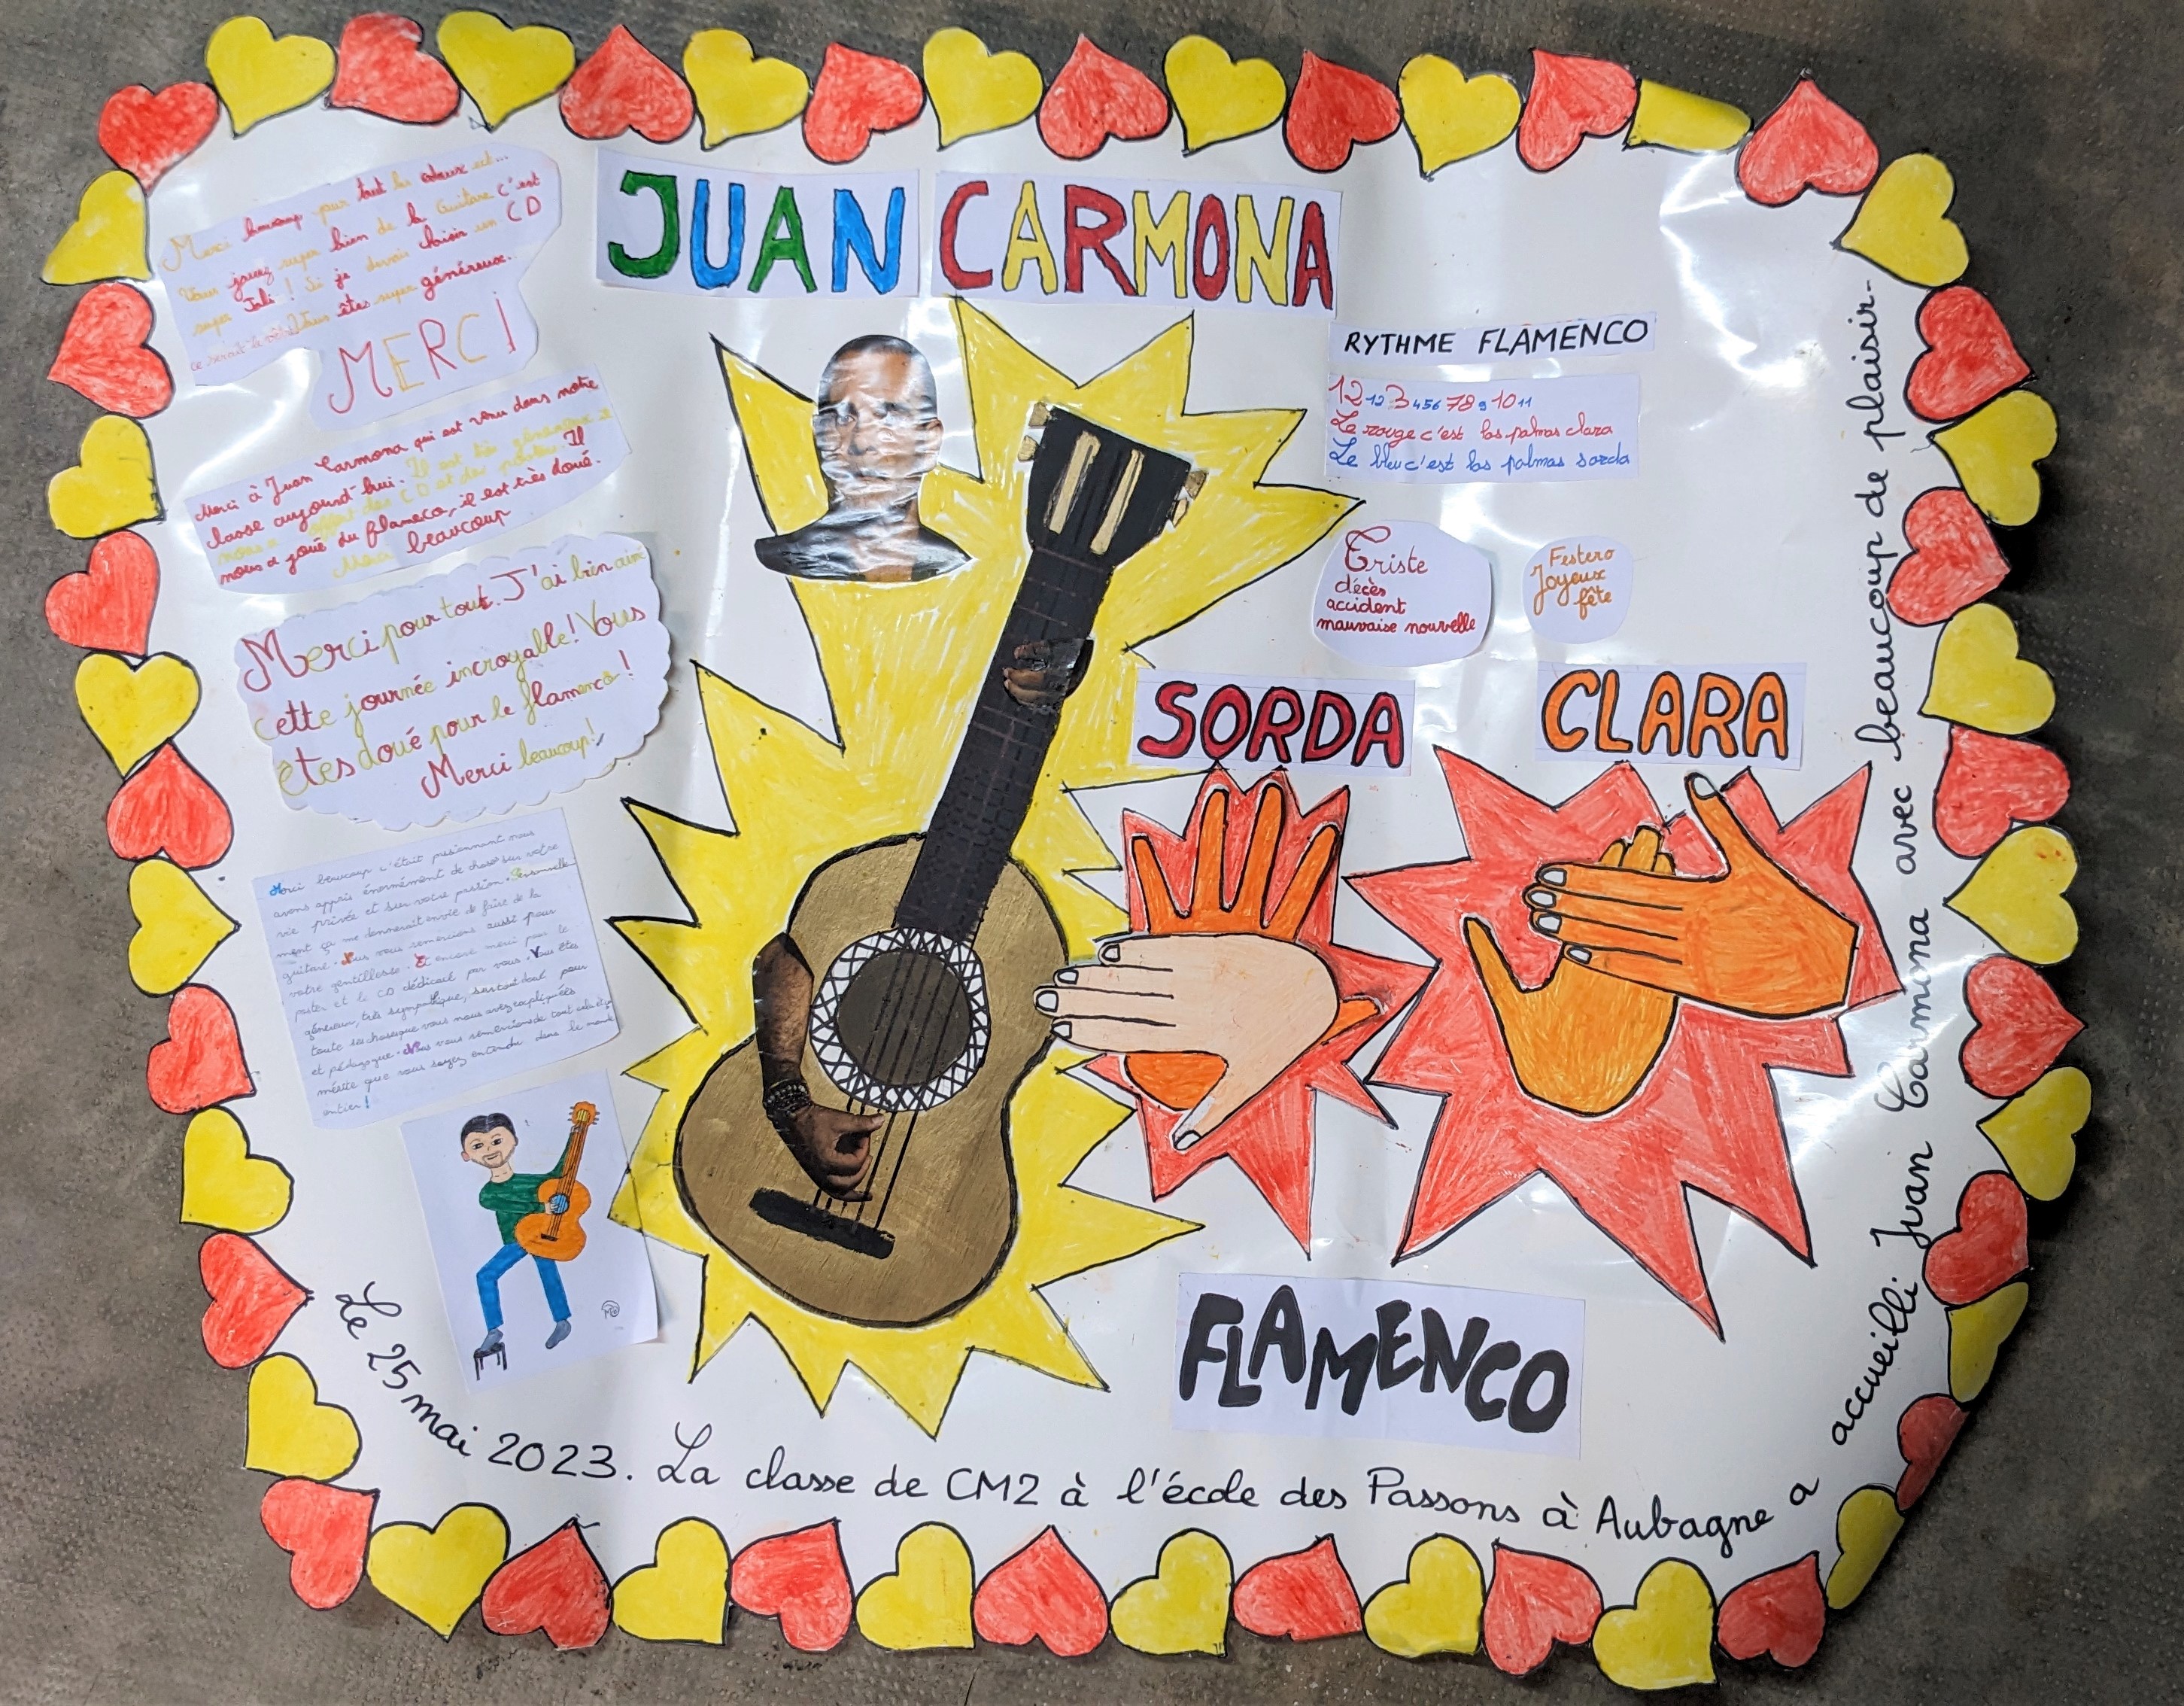 JUAN CARMONA
Merci beaucoup pour tout les
Vous jouez super bien de la Guitare c'est
super Joli ! Si je devais choisir un CD
ce serait Vous êtes super généreux.
MERCI
Merci à Juan Carmona qui est venu dans notre
classe aujourd'hui. Il est très généreux il
nous a offert des CD et des posters. Il
nous a joué du flameco, il est très doué.
Merci beaucoup
Merci pour tout. J'ai bien aimé
cette journée incroyable! Vous
êtes doué pour le flamenco!
Merci beaucoup!
Merci beaucoup c'était pasionnant nous
avons appris énormément de chose sur votre
vie privée et sur votre passion. Personnelle-
ment ça me donnerait envie de faire de la
guitare. Nous vous remercions aussi pour
votre gentillesse. Et encore merci pour le
poster et le CD dédicacé par vous. Vous êtes
généreux, très sympathique, surtout doué pour
toute les choses que vous nous avez expliquées
et pédagogue. Nous vous remercions de tout cela et ça
mérite que vous soyez entendu dans le monde
entier!
RYTHME FLAMENCO
12 1 2 3 4 5 6 7 8 9 10 11
Le rouge c'est las palmas clara
Le bleu c'est las palmas sorda
Triste
décès
accident
mauvaise nouvelle
Festero
Joyeux
fête
SORDA
CLARA
FLAMENCO
Le 25 mai 2023. La classe de CM2 à l'école des Passons à Aubagne a accueilli Juan Carmona avec beaucoup de plaisir.